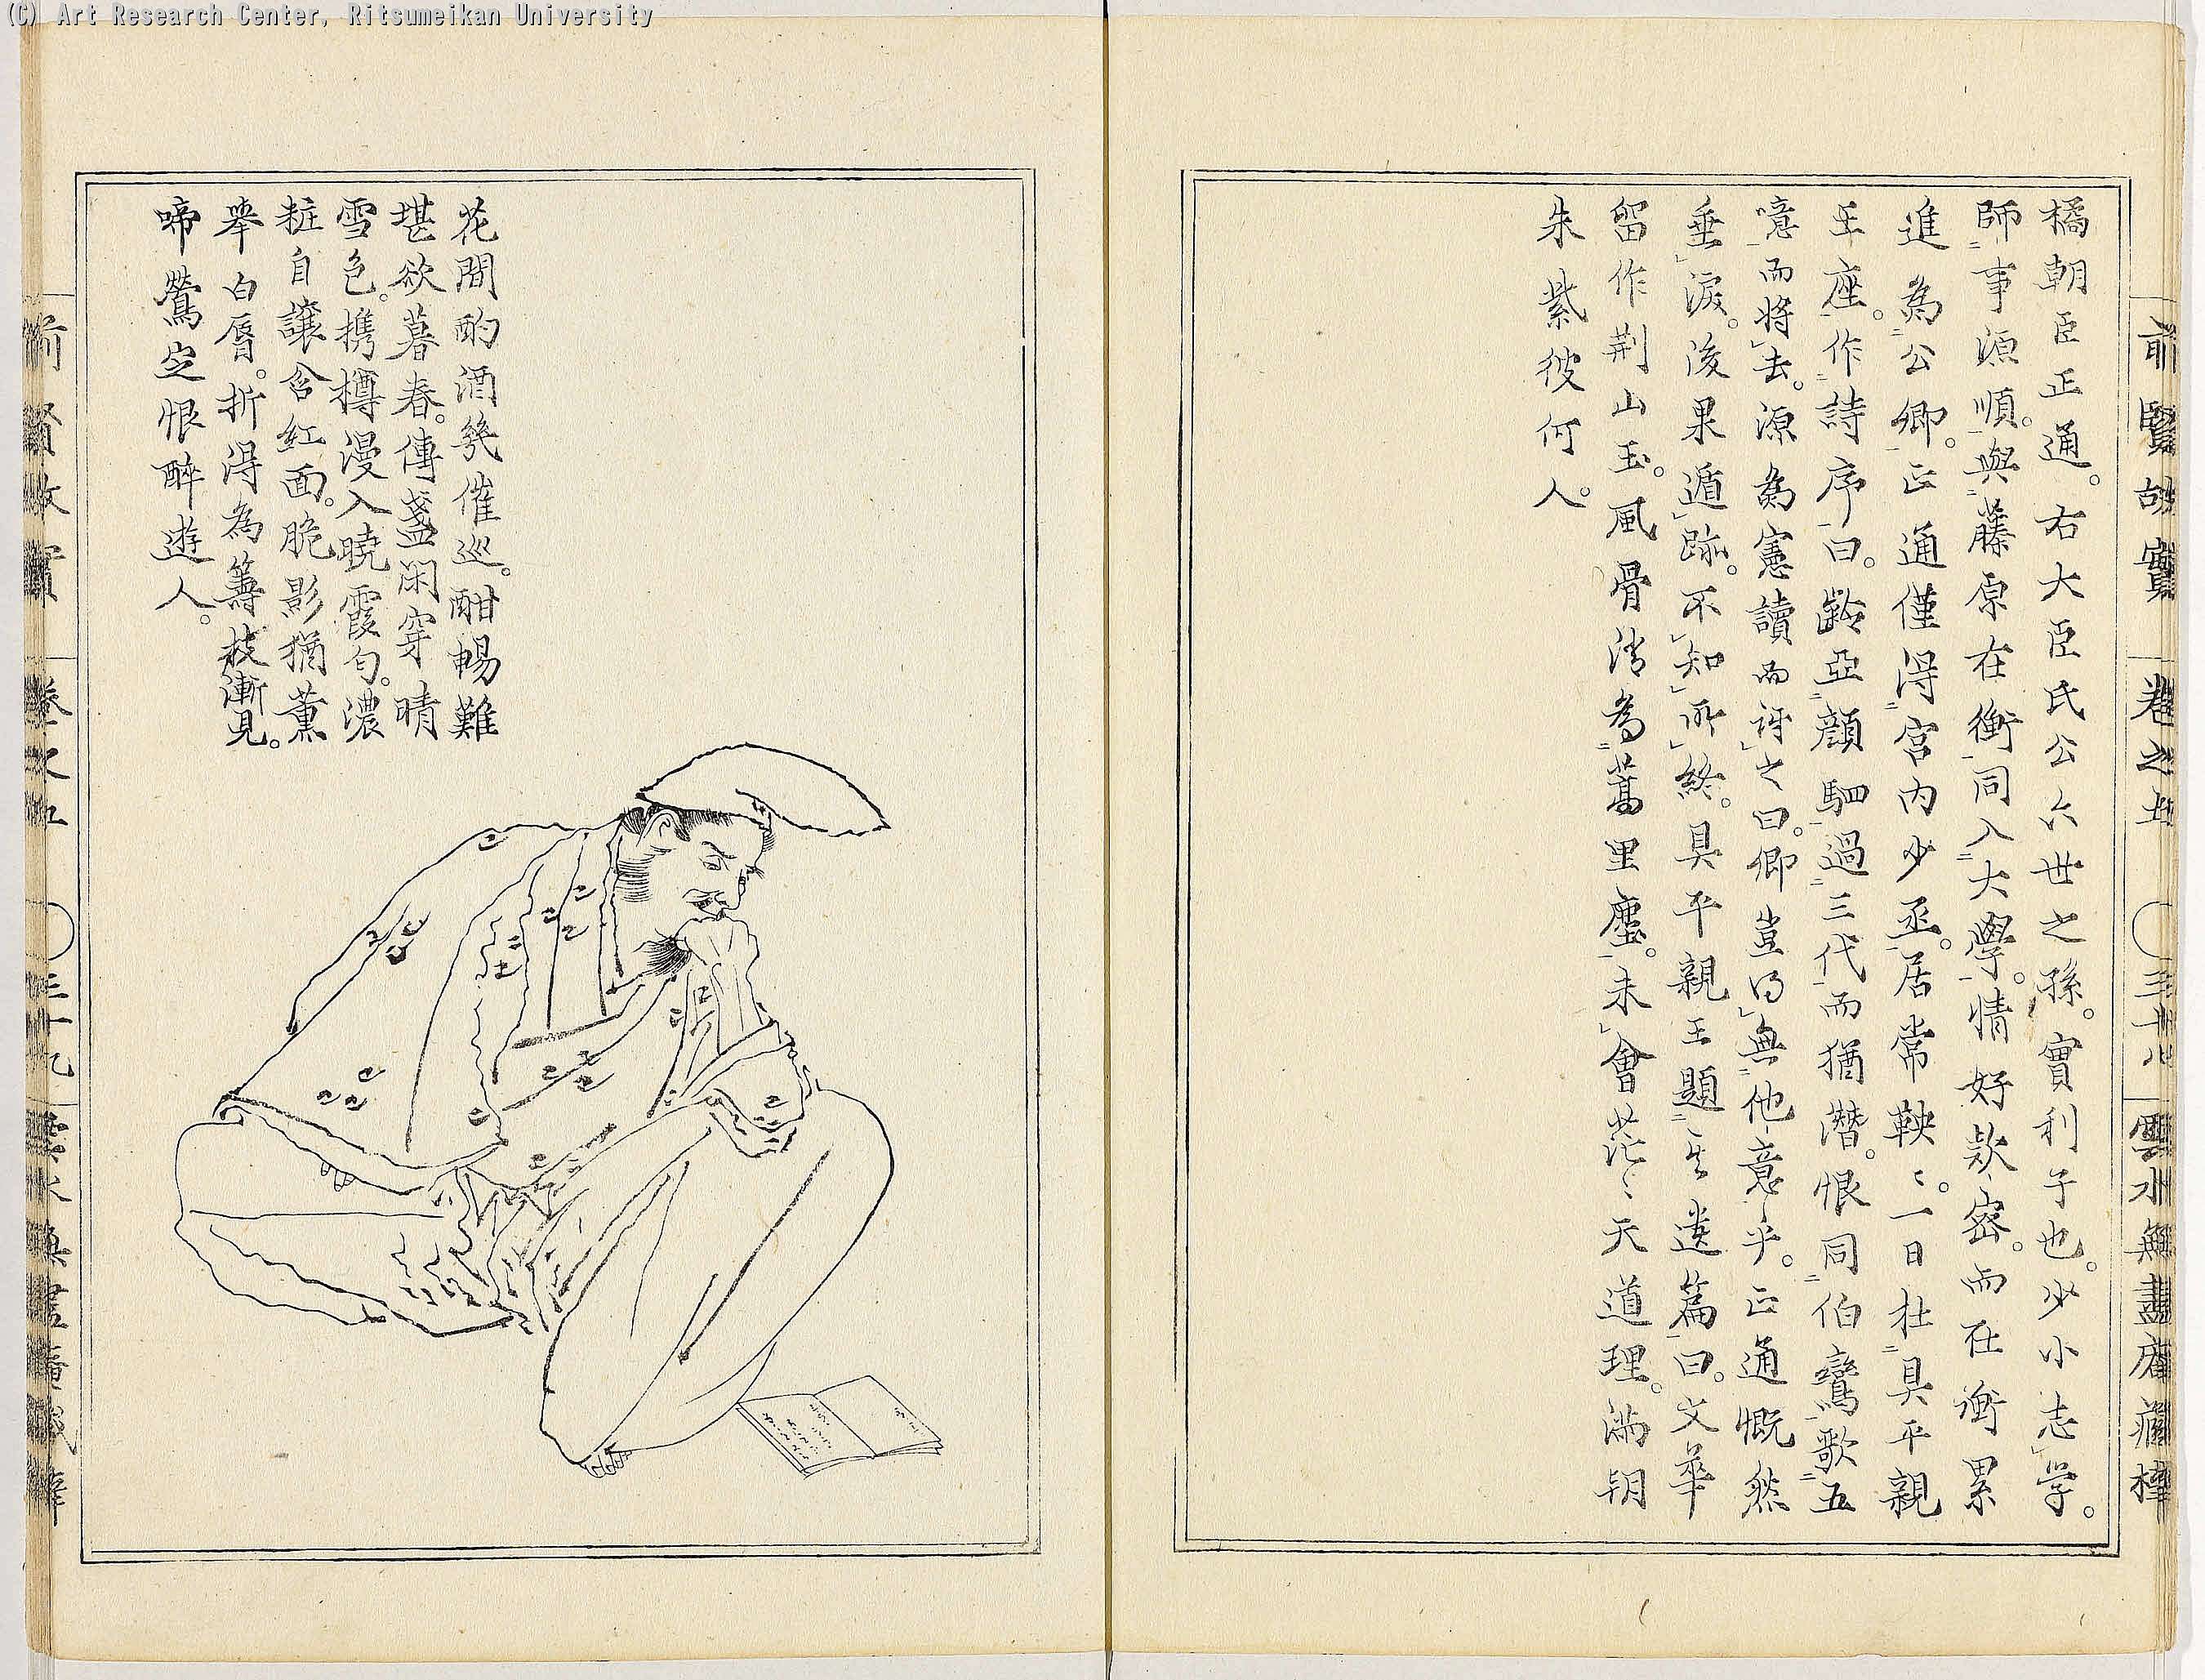 (C) Art Research Center, Ritsumeikan University
前賢故實 卷之五 〇三十八 雲水無盡庵藏梓
橘朝臣正通。右大臣氏公六世之孫。實利子也。少小志學。
師事源順。與藤原在衡同入大學。情好款密。而在衡累
進為公卿。正通僅得宮内少丞。居常鞅〻。一日在具平親
王座。作詩序曰。齡亞顏駟過三代而猶潛。恨同伯鸞歌五
噫而將去。源為憲讀而訝之曰。卿豈得無他意乎。正通慨然
垂淚。後果遁跡。不知所終。具平親王題其遺篇曰。文華
留作荆山玉。風骨消為蒿里塵。未會茫〻天道理。滿朝
朱紫彼何人。
花間酌酒幾催巡。酣暢難
堪欲暮春。傳盞閑穿晴
雪色。携樽漫入曉霞匂。濃
粧自讓含紅面。脆影猶薰
擧白脣。折得為籌枝漸見。
啼鶯定恨醉遊人。
前賢故實 卷之五 三十九 雲水無盡庵藏梓